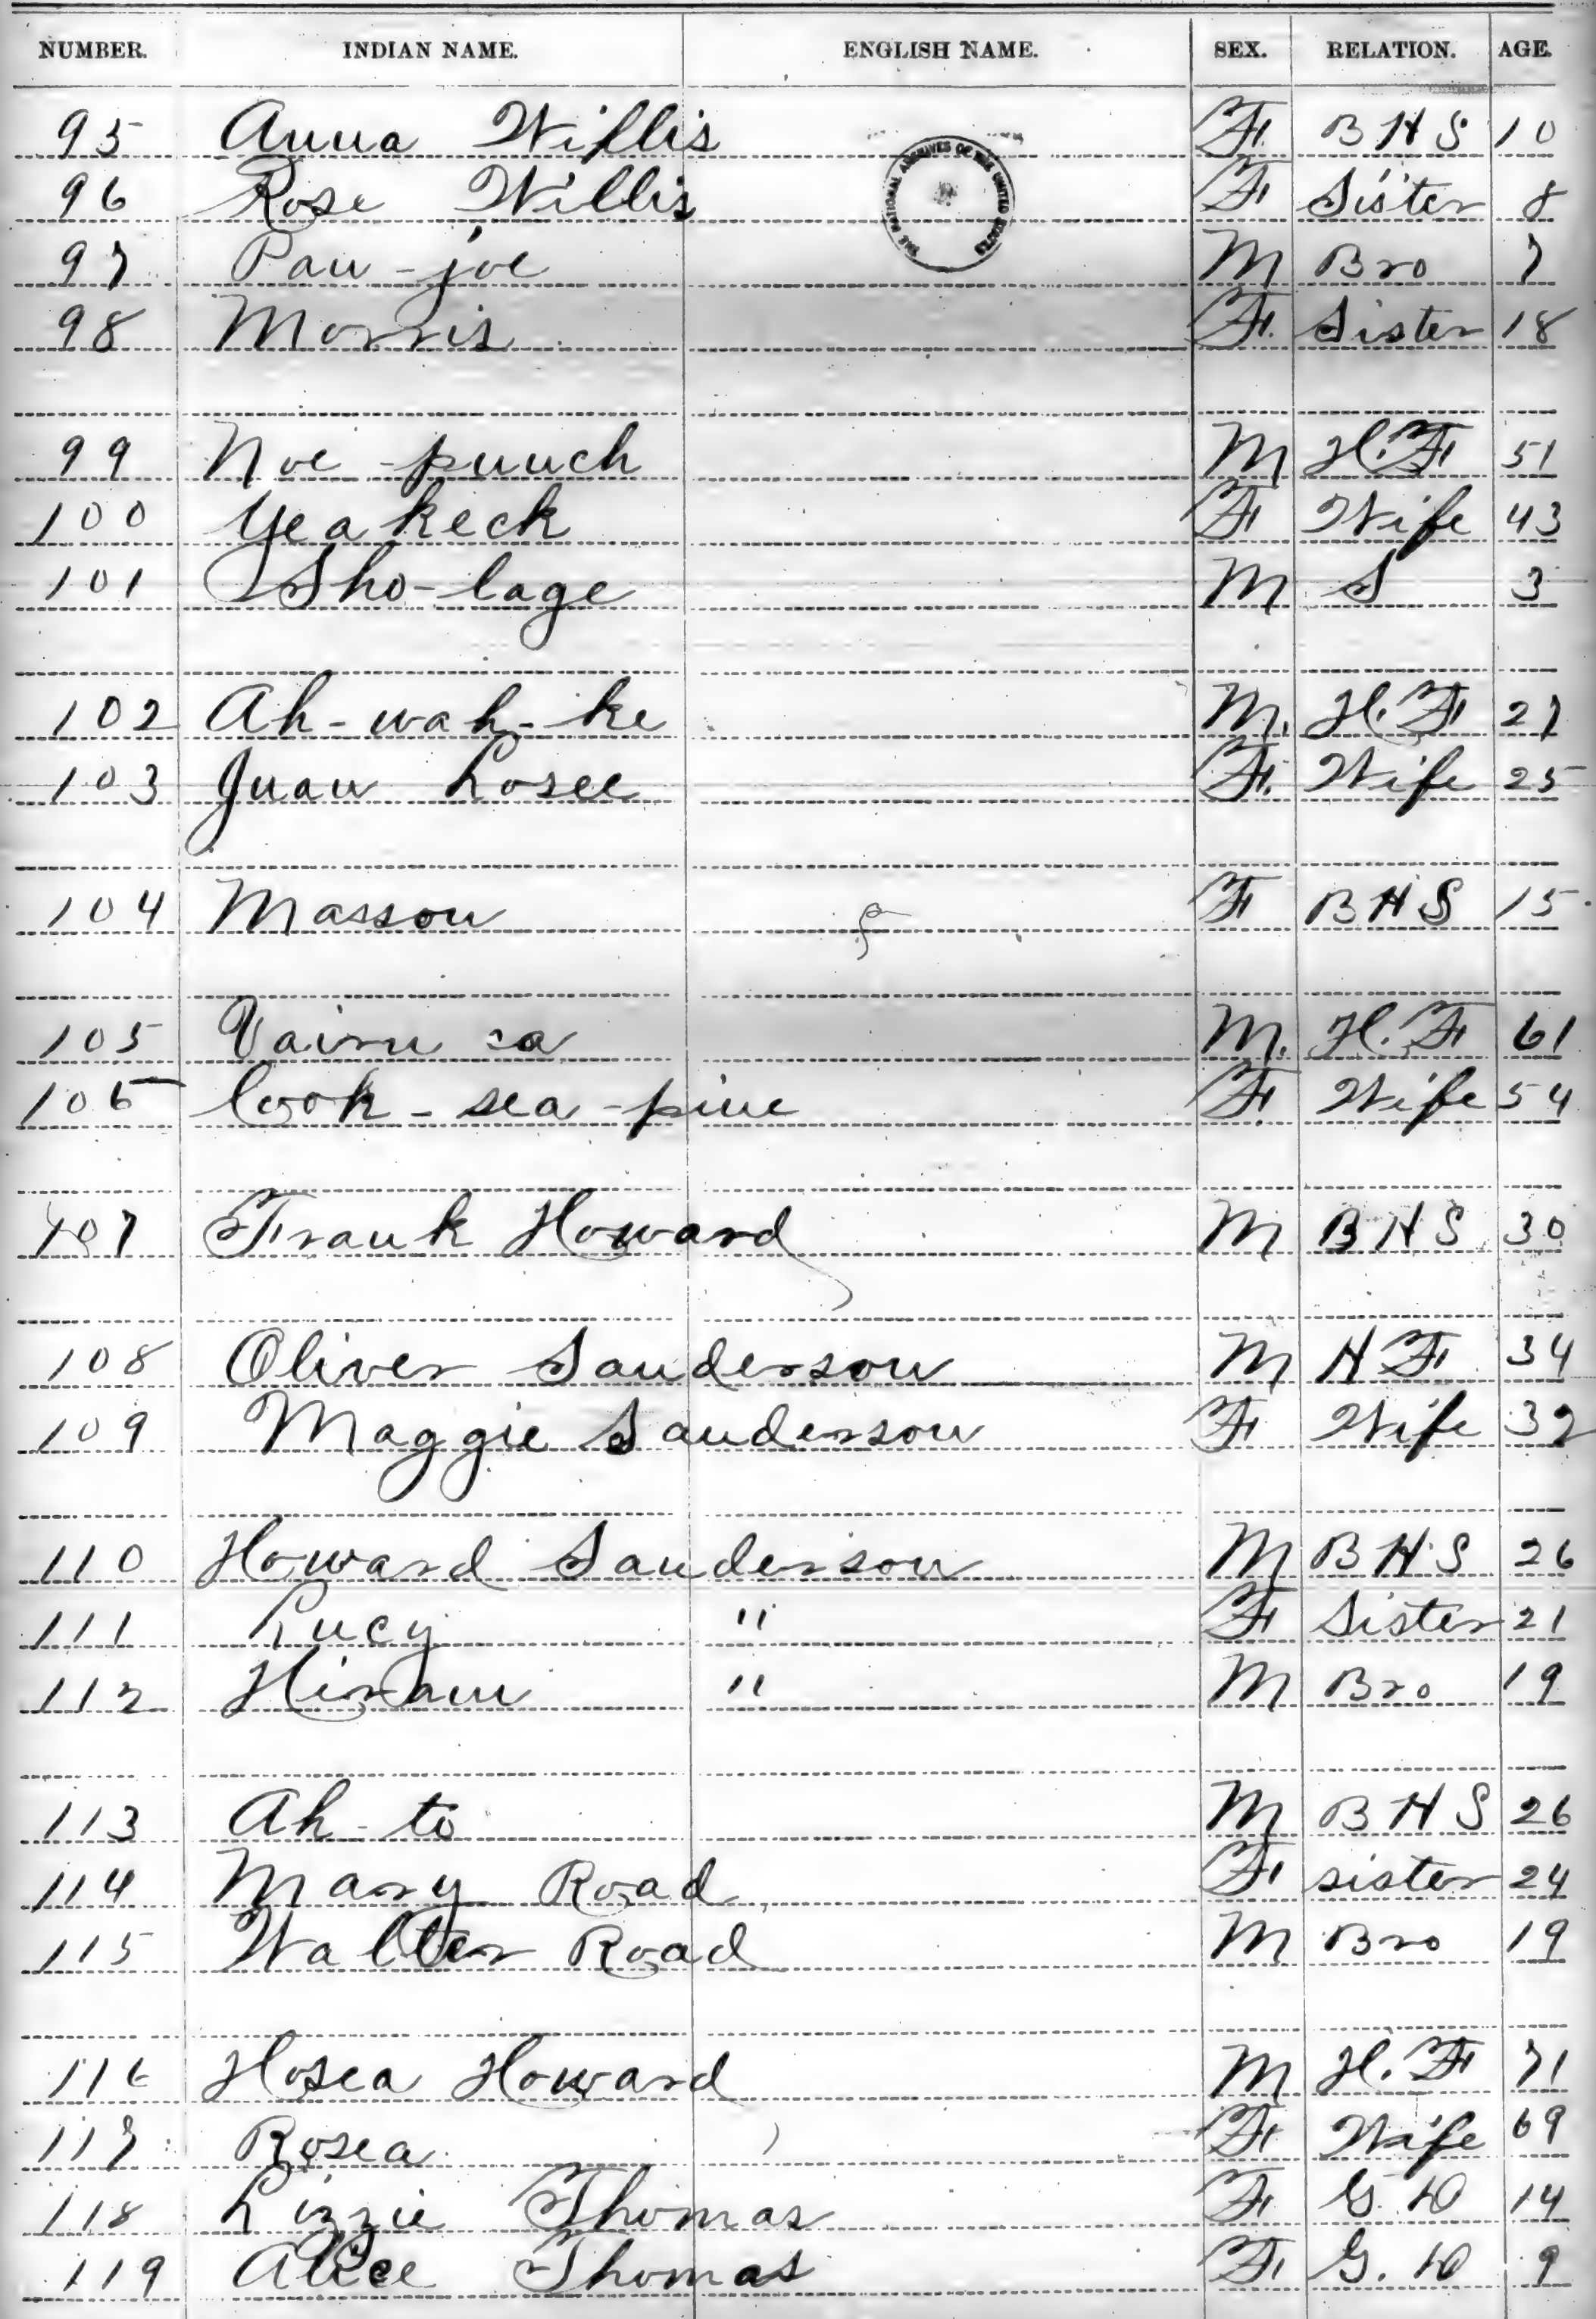 NUMBER. INDIAN NAME. ENGLISH NAME. SEX. RELATION. AGE.
95 Anna Willis F. B H S 10
THE NATIONAL ARCHIVES OF THE UNITED STATES
96 Rose Willis F Sister 8
97 Pau-joe M Bro 7
98 Morris F. Sister 18
99 Noe-punch M H.F 51
100 Yea keck F Wife 43
101 Sho-lage M S 3
102 Ah-wah-ke M. H.F 27
103 Juan Losee F. Wife 25
104 Masson F B H S 15
105 M. H.F 61
106 Cook-sea-pine F. Wife 54
107 Frank Howard M B H S 30
108 Oliver Sanderson M H F 34
109 Maggie Sanderson F Wife 32
110 Howard Sanderson M B H S 26
111 Lucy " F Sister 21
112 Hiram " M Bro 19
113 Ah-to M B H S 26
114 Mary Road F sister 24
115 Walter Road M Bro 19
116 Hosea Howard M H.F 71
117 Rosea F Wife 69
118 Lizzie Thomas F G. D 14
119 Alice Thomas F G. D 9